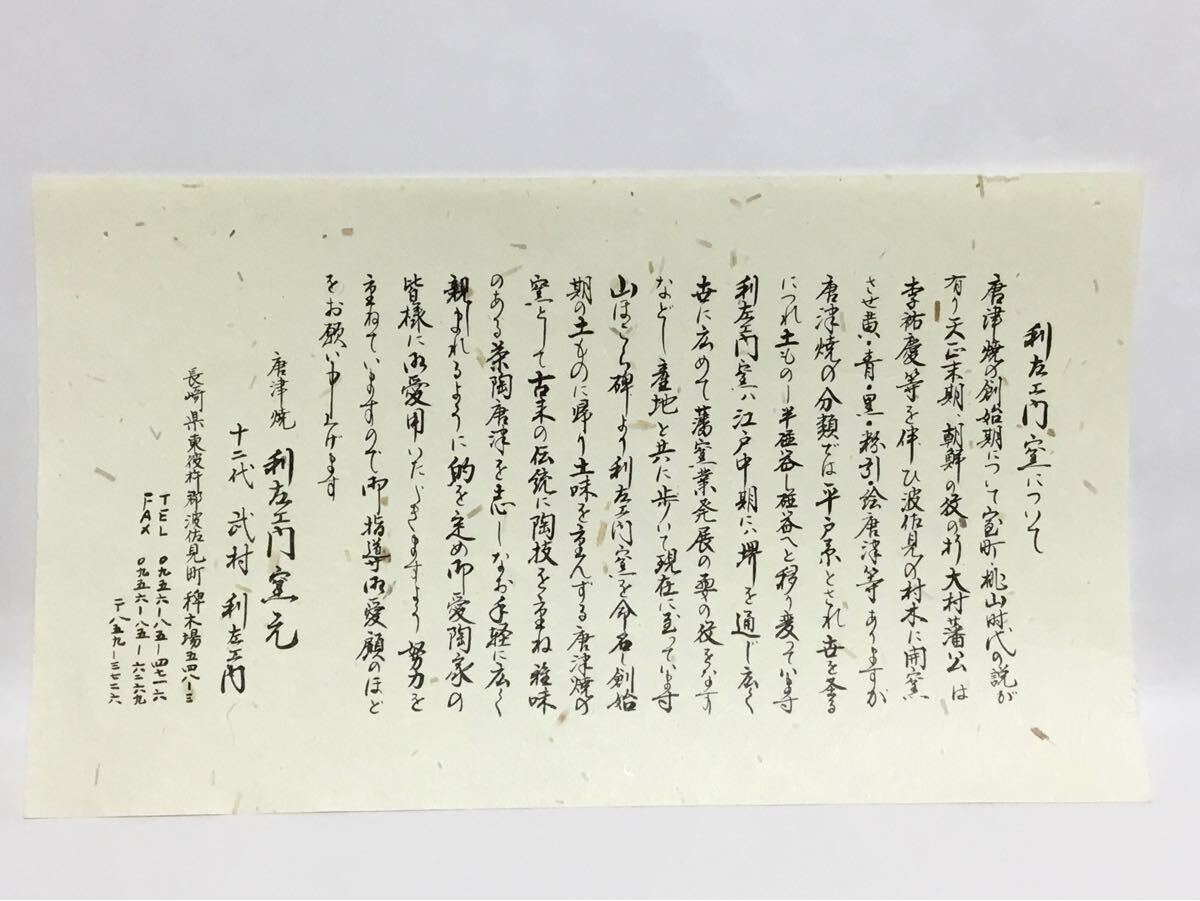 利左エ門窯について
唐津焼の創始期について室町・桃山時代の説が
有り天正末期、朝鮮の役の折大村藩公は
李祐慶等を伴ひ波佐見の村木に開窯
させ黄・青・黒・粉引・絵唐津等ありますが
唐津焼の分類では平戸系とされ世を登る
につれ土もの、半磁器、磁器へと移り変っています
利左エ門窯ハ江戸中期にハ堺を通じ広く
世に広めて藩窯業発展の専の役をなす
などし産地と共に歩いて現在に至っています
山ほとら碑より利左エ門窯を命名し創始
期の土ものに帰り土味を重んずる唐津焼の
窯として古来の伝統に陶技を重ね雅味
のある茶陶唐津を志しなお手軽に広く
親しまれるように的を定め御愛陶家の
皆様に御愛用いただきますよう努力を
重ねていますので御指導御愛顧のほど
をお願い申し上げます
唐津焼 利左エ門窯元
十二代 武村 利左エ門
長崎県東彼杵郡波佐見町稗木場五四八ー三
TEL 〇九五六ー八五ー四七一六
FAX 〇九五六ー八五ー六二六九
〒八五九ー三七二六